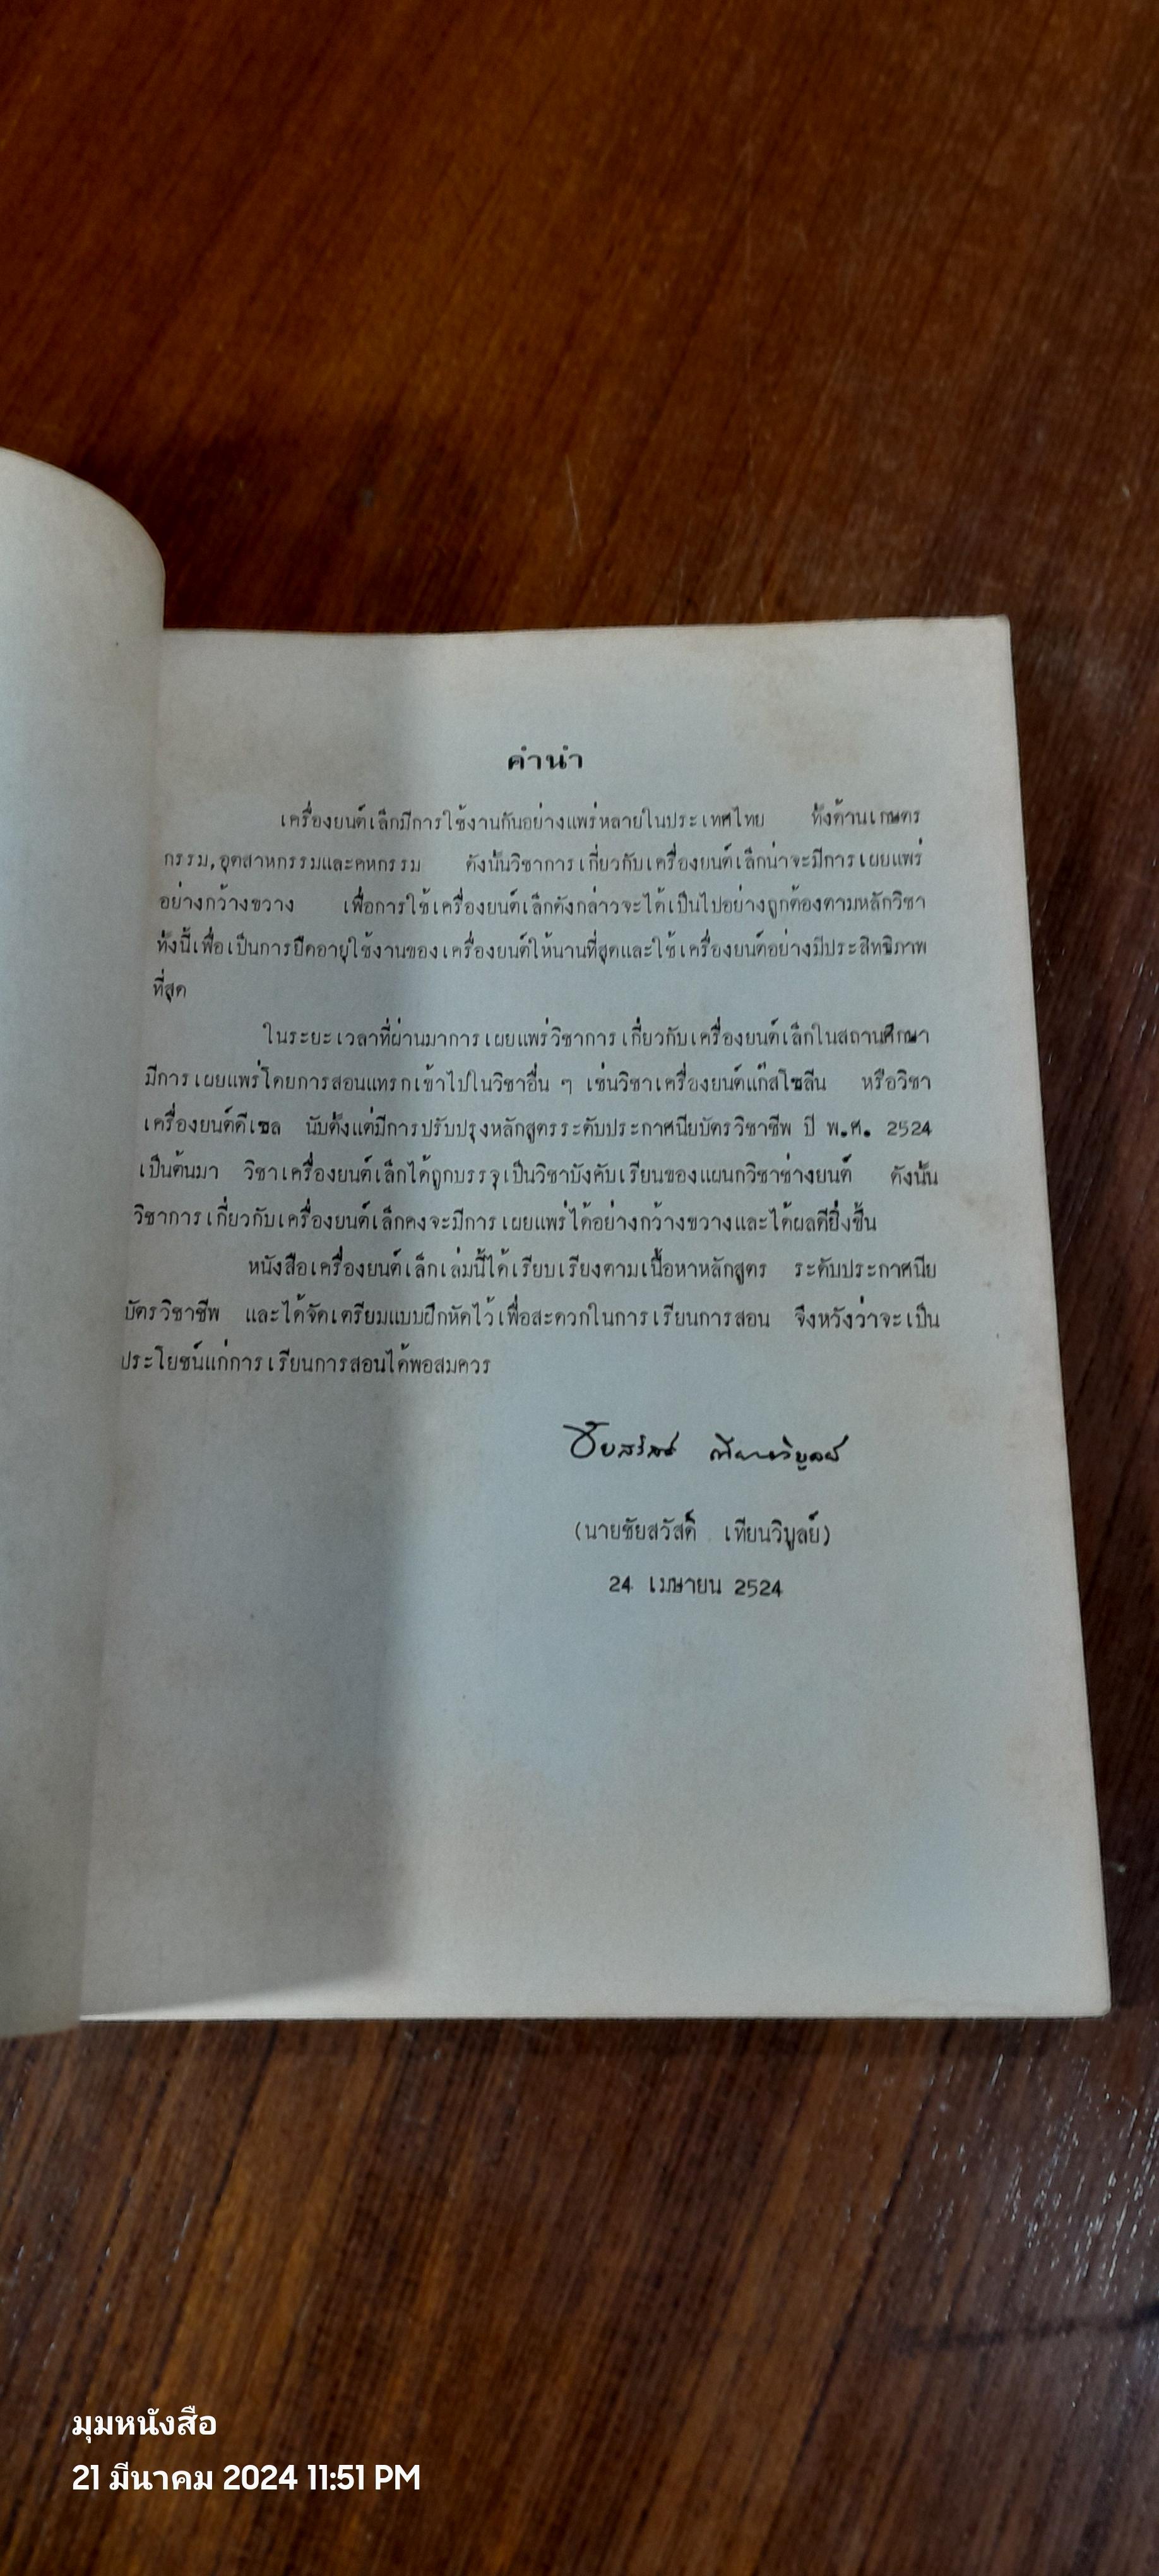 คำนำ
เครื่องยนต์เล็กมีการใช้งานกันอย่างแพร่หลายในประเทศไทย ทั้งด้านเกษตร
กรรม,อุตสาหกรรมและคหกรรม ดังนั้นวิชาการเกี่ยวกับเครื่องยนต์เล็กน่าจะมีการเผยแพร่
อย่างกว้างขวาง เพื่อการใช้เครื่องยนต์เล็กดังกล่าวจะได้เป็นไปอย่างถูกต้องตามหลักวิชา
ทั้งนี้เพื่อเป็นการยืดอายุใช้งานของเครื่องยนต์ให้นานที่สุดและใช้เครื่องยนต์อย่างมีประสิทธิภาพ
ที่สุด
ในระยะเวลาที่ผ่านมาการเผยแพร่วิชาการเกี่ยวกับเครื่องยนต์เล็กในสถานศึกษา
มีการเผยแพร่โดยการสอนแทรกเข้าไปในวิชาอื่น ๆ เช่นวิชาเครื่องยนต์แก๊สโซลีน หรือวิชา
เครื่องยนต์ดีเซล นับตั้งแต่มีการปรับปรุงหลักสูตรระดับประกาศนียบัตรวิชาชีพ ปี พ.ศ. 2524
เป็นต้นมา วิชาเครื่องยนต์เล็กได้ถูกบรรจุเป็นวิชาบังคับเรียนของแผนกวิชาช่างยนต์ ดังนั้น
วิชาการเกี่ยวกับเครื่องยนต์เล็กคงจะมีการเผยแพร่ได้อย่างกว้างขวางและได้ผลดียิ่งขึ้น
หนังสือเครื่องยนต์เล็กเล่มนี้ได้เรียบเรียงตามเนื้อหาหลักสูตร ระดับประกาศนีย
บัตรวิชาชีพ และได้จัดเตรียมแบบฝึกหัดไว้เพื่อสะดวกในการเรียนการสอน จึงหวังว่าจะเป็น
ประโยชน์แก่การเรียนการสอนได้พอสมควร
ชัยสวัสดิ์ เทียนวิบูลย์
(นายชัยสวัสดิ์ เทียนวิบูลย์)
24 เมษายน 2524
มุมหนังสือ
21 มีนาคม 2024 11:51 PM